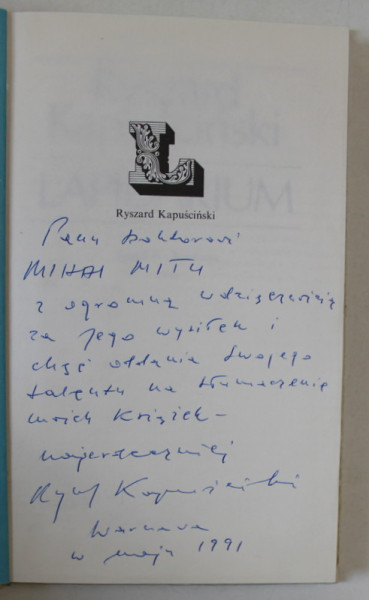 L
Ryszard Kapuściński
Panu Doktorowi
MIHAI MITU
z ogromną wdzięcznością
za Jego wysiłek i
chęć oddania swojego
talentu na tłumaczenie
moich książek –
najserdeczniej
Ryszard Kapuściński
Warszawa
w maju 1991